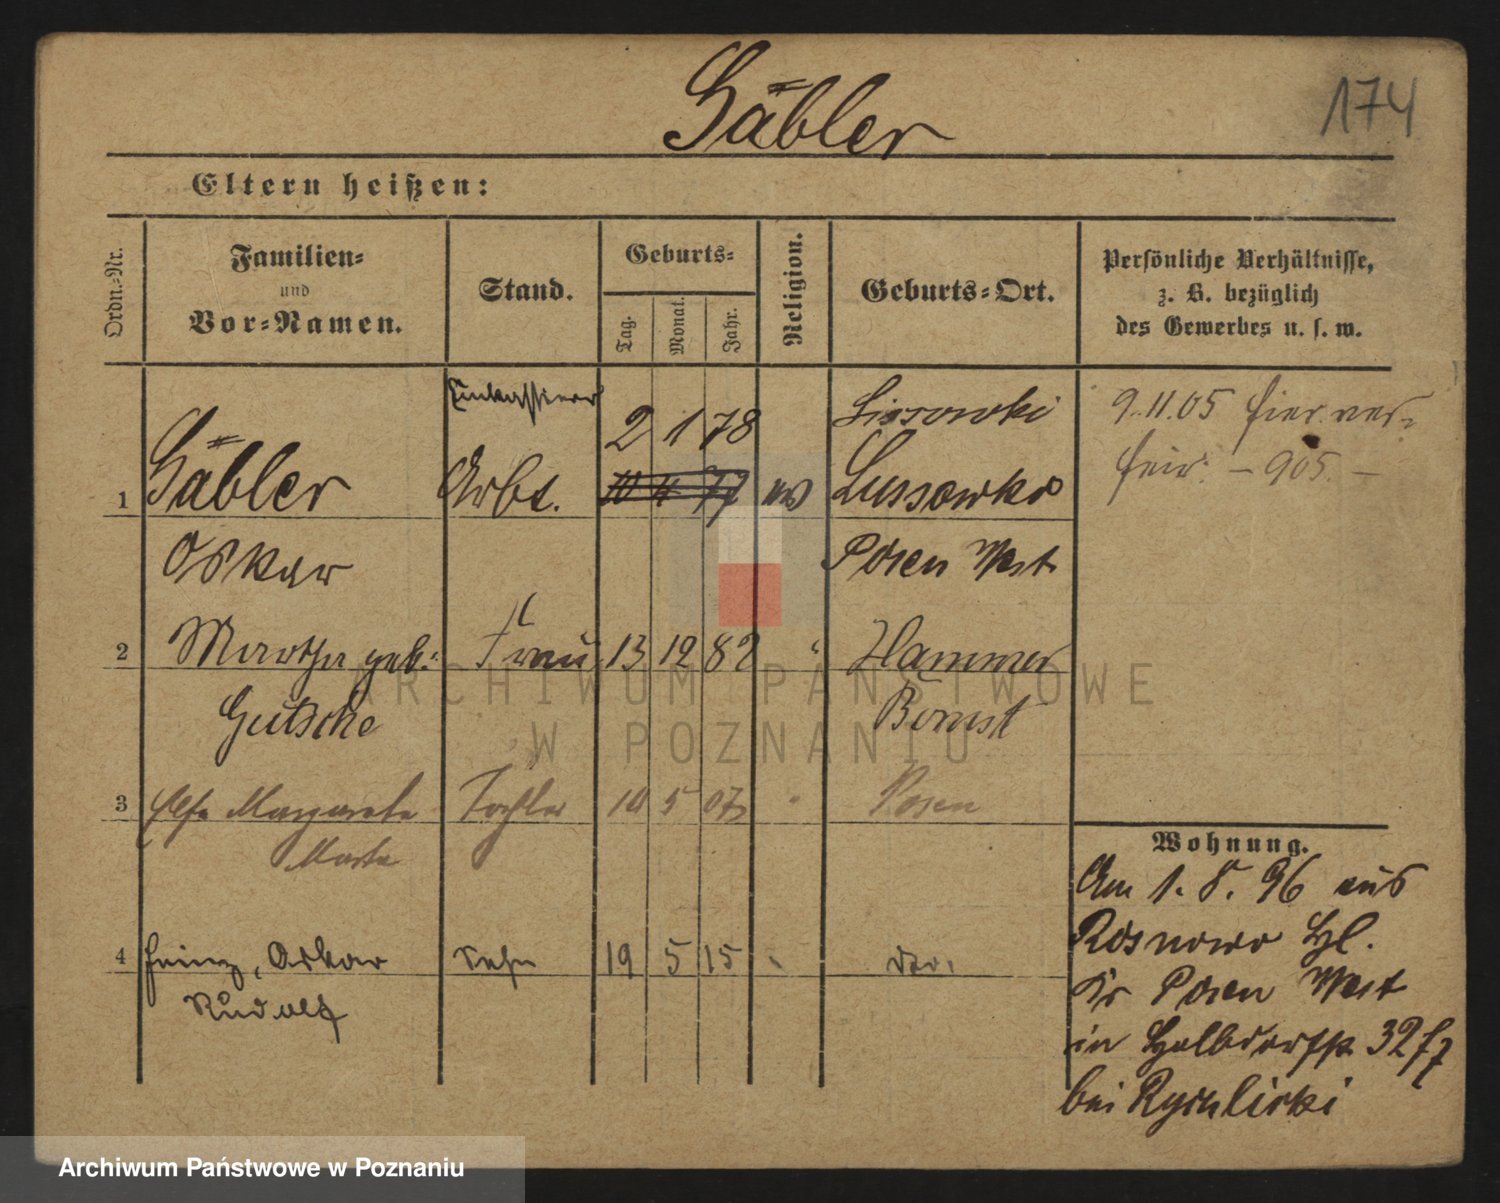 Gäbler
174
Eltern heißen:
Ordn.-Nr.
Familien-
und
Vor-Namen.
Stand.
Geburts-
Tag.
Monat.
Jahr.
Religion.
Geburts-Ort.
Persönliche Verhältnisse,
z. B. bezüglich
des Gewerbes u. s. w.
Einkassierer
2 1 78
Lissowki
9.11.05 hier ver-
heir. - 905. -
1 Gäbler Arbt. 10 4 77 ev Lussowko
Oskar Posen West
2 Martha geb. Frau 13 12 82 " Hammer
Gutsche Bomst
3 Else Margarete Tochter 10 5 07 " Posen
Marta
Wohnung.
Am 1. 8. 96 aus
4 Heinz, Oskar Sohn 19 5 15 " do.
Rudolf
Rosnowo Hl.
Kr Posen West
in Halbdorfstr 32
bei Rychlicki
ARCHIWUM PAŃSTWOWE
W POZNANIU
Archiwum Państwowe w Poznaniu